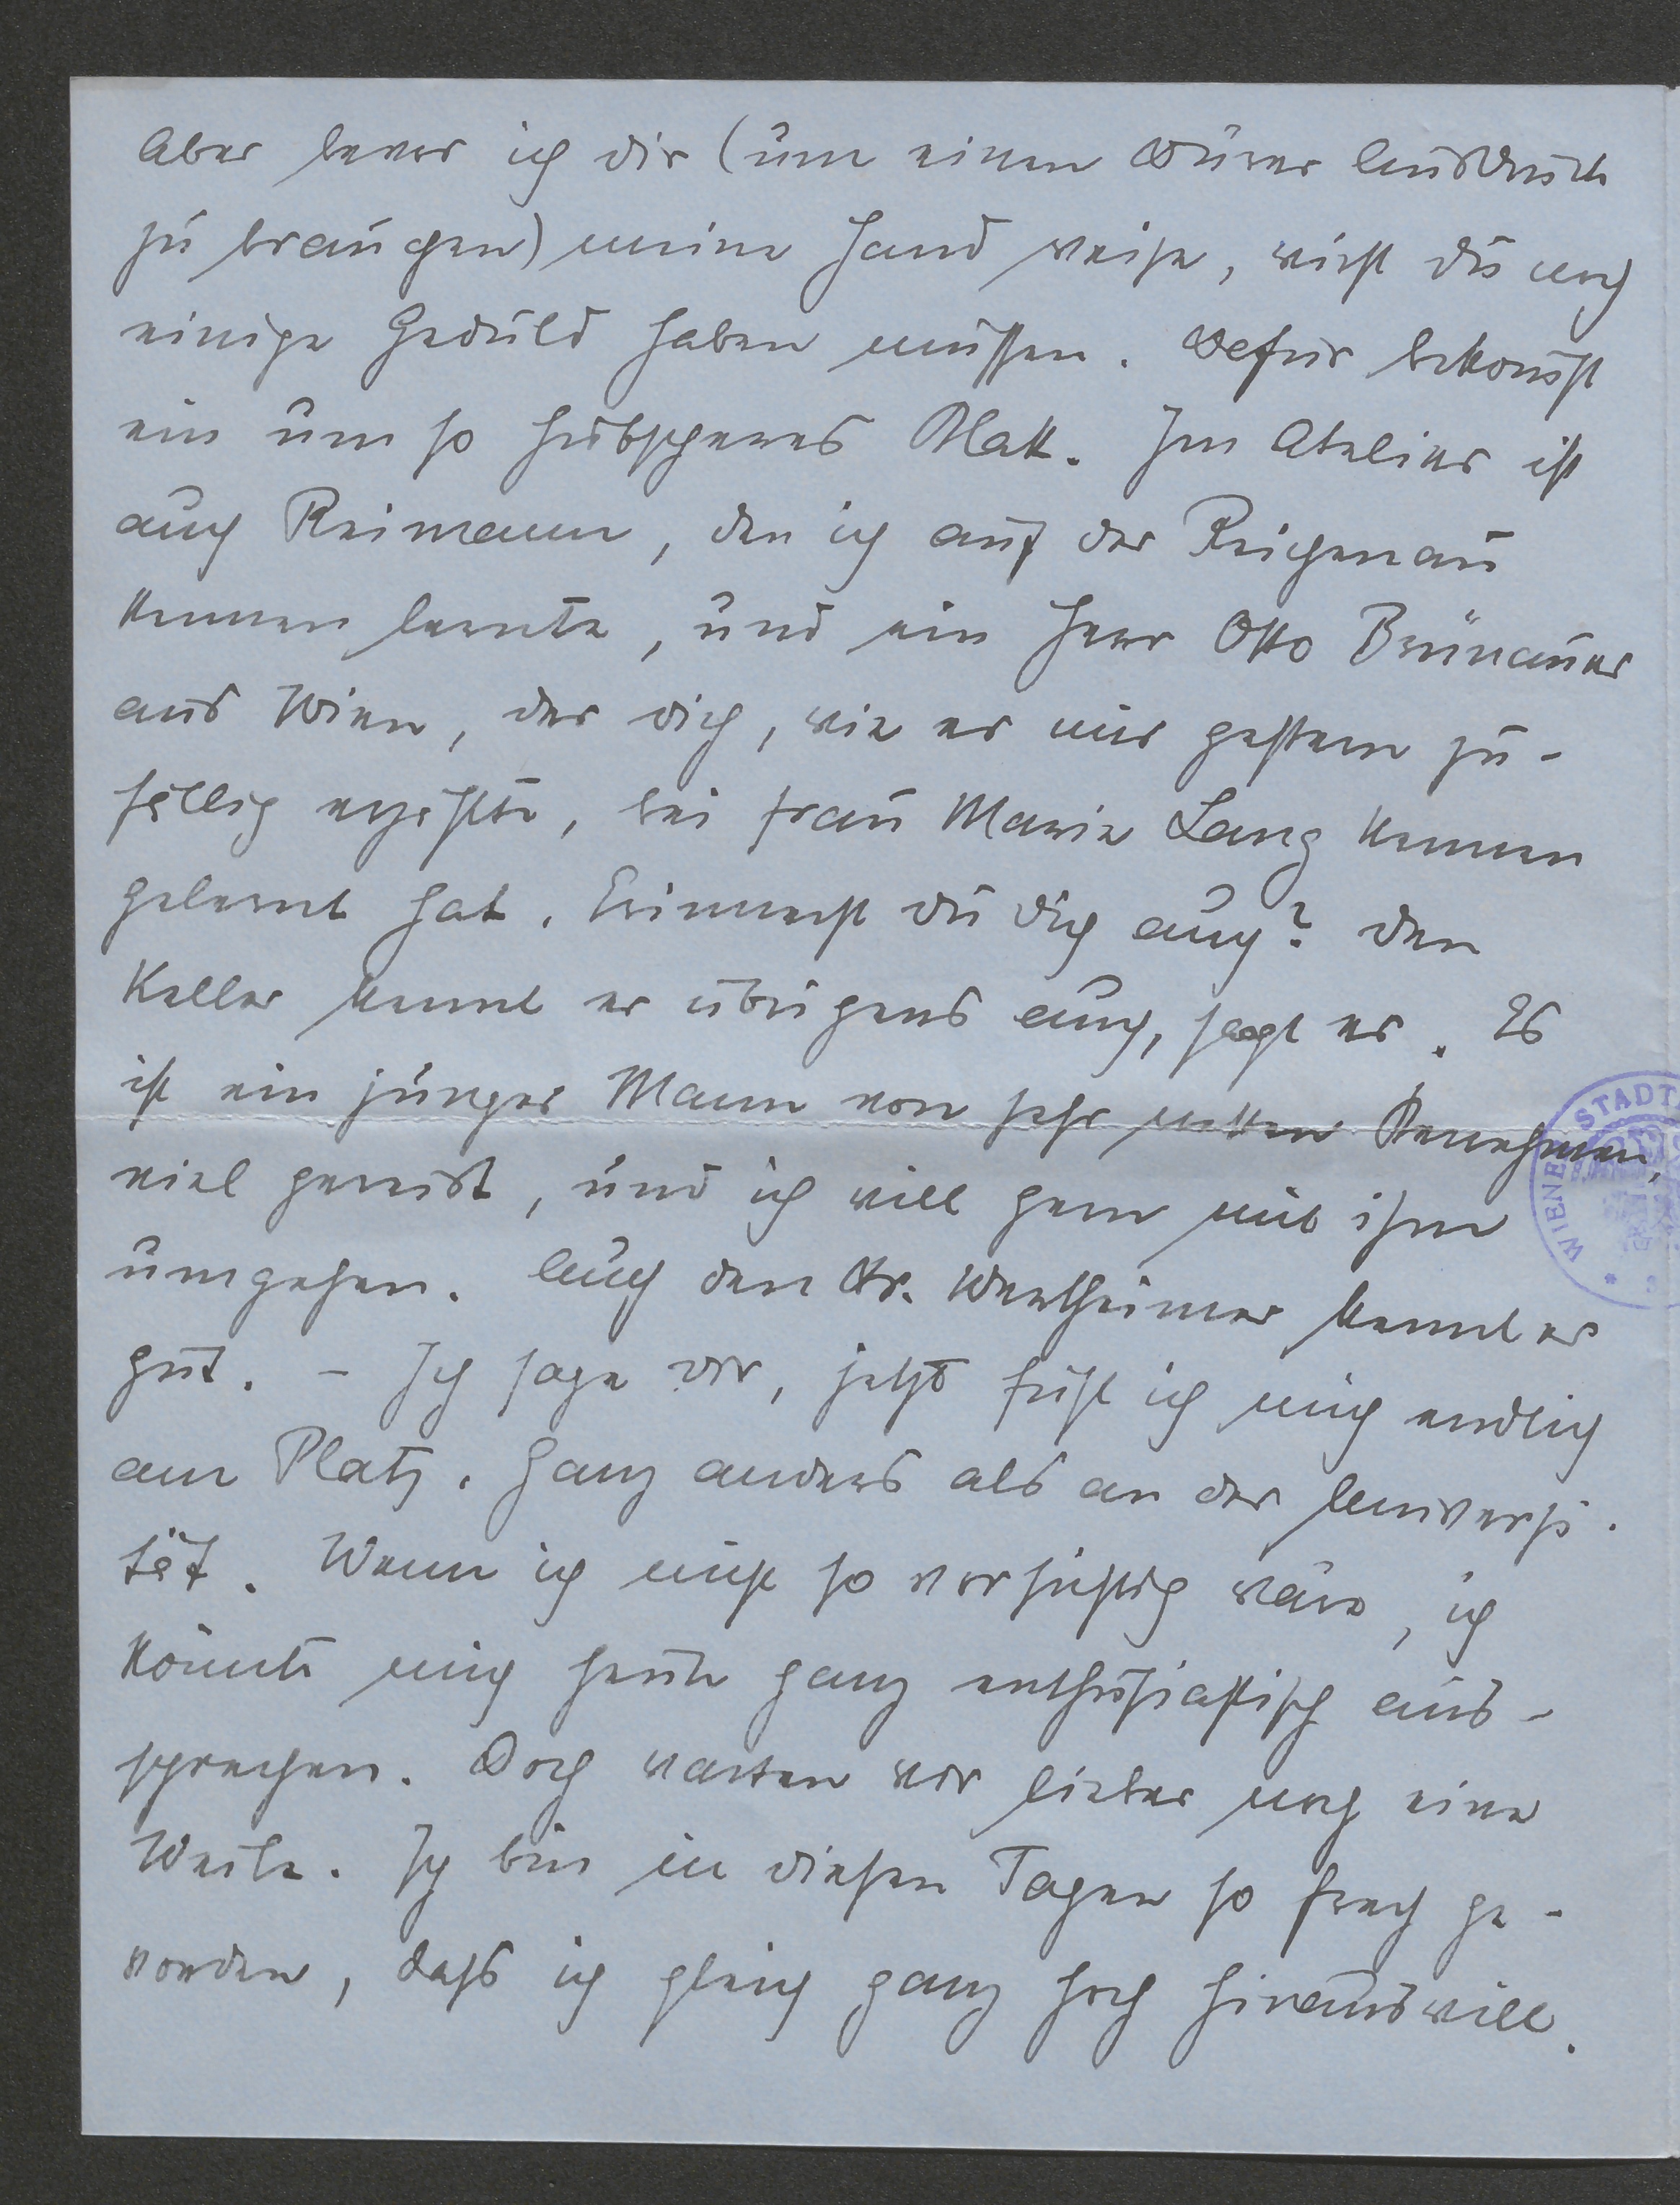 Aber bevor ich dir (um einen Dürer Ausdruck
zu brauchen) meine Hand weise, wirst du noch
einige Geduld haben müssen. Dafür bekomst
ein um so hübscheres Blatt. Im Atelier ist
auch Reimann, den ich auf der Reichenau
kennen lernte, und ein Herr Otto Brünauer
aus Wien, der dich, wie er mir gestern zu-
fällig erzählte, bei Frau Marie Lang kennen
gelernt hat. Erinnerst du dich auch? Den
Keller kennt er übrigens auch, sagt er. Es
ist ein junger Mann von sehr nettem Benehmen,
viel gereist, und ich will gern mit ihm
umgehen. Auch den Dr. Wertheimer kennt er
gut. – Ich sage dir, jetzt fühl ich mich endlich
am Platz. Ganz anders als an der Universi-
tät. Wenn ich nicht so vorsichtig wäre, ich
könnte mich heute ganz enthusiastisch aus-
sprechen. Doch warten wir lieber noch eine
Weile. Ich bin in diesen Tagen so frech ge-
worden, dass ich gleich ganz hoch hinaus will.
WIENER STADT